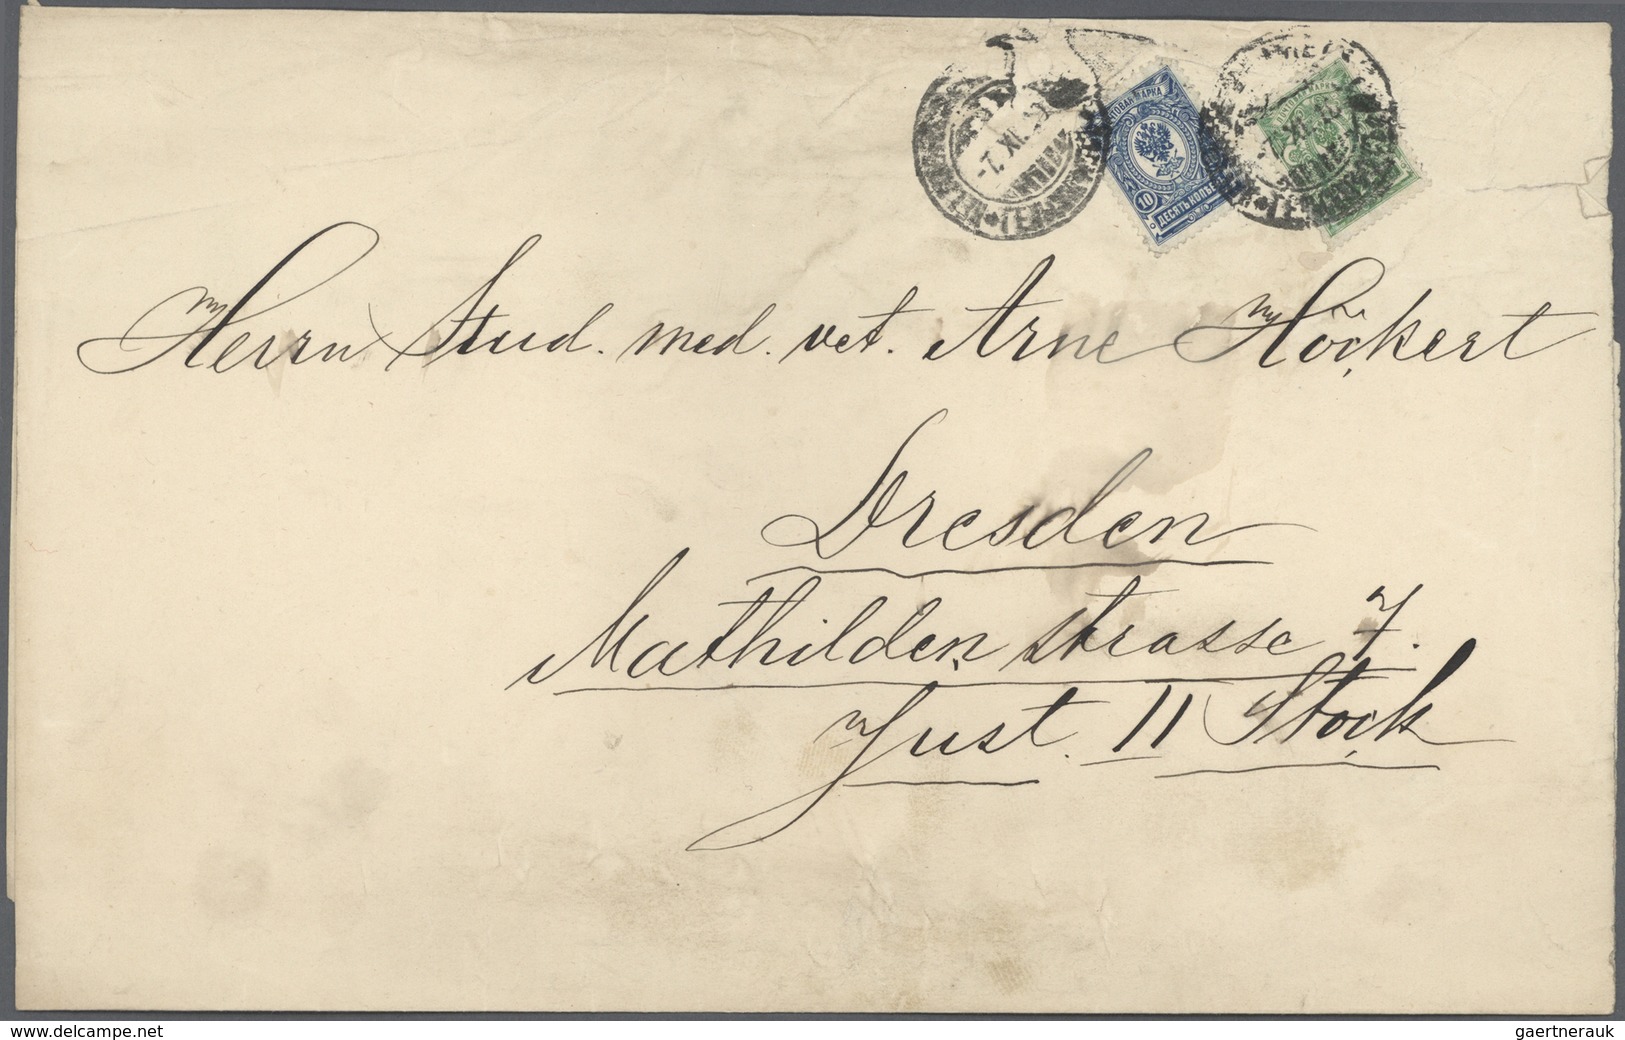 ПОЧТОВАЯ МАРКА
10
ДЕСЯТЬ КОПѢЕКЪ
Herrn Stud. med. vet. Arne Höckert
Dresden
Mathilden strasse 7.
Just. II Stock
www.delcampe.net
gaertnerauk